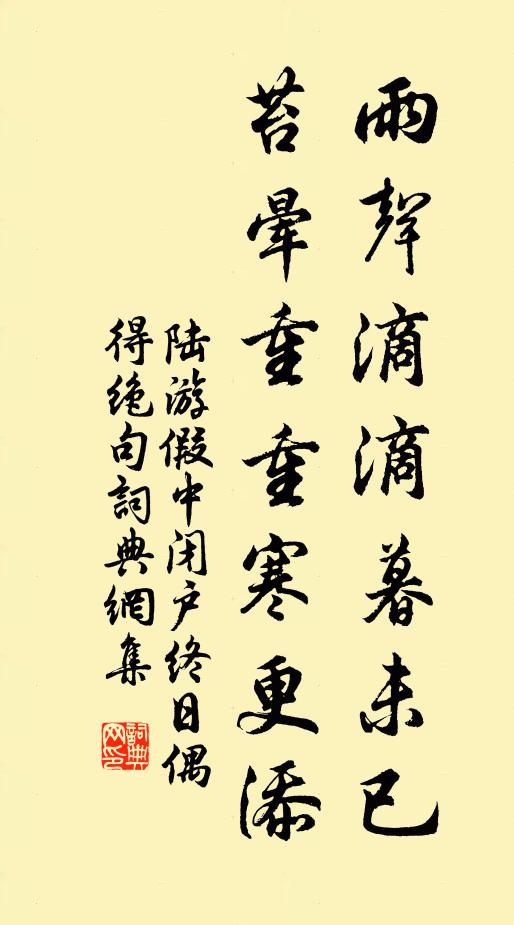 雨聲滴滴暮未已
苔暈重重寒更添
陆游假中闭户终日偶
得绝句詞典網集
詞典
网印